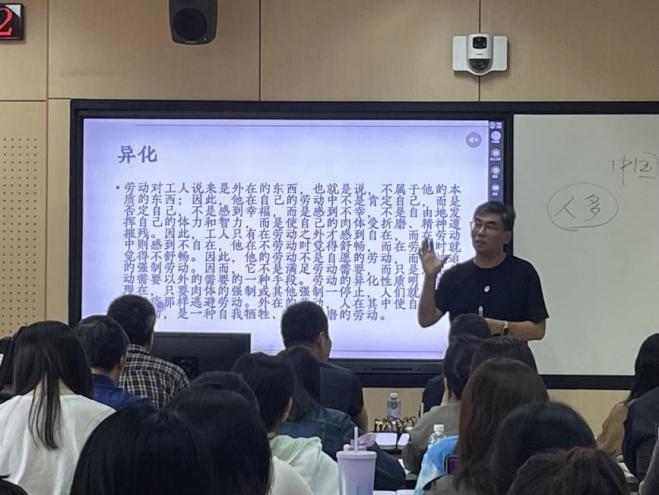 2
异化
• 劳动对工人说来是外在的东西，也就是说，不属于他的本
质的东西；因此，他在自己的劳动中不是肯定自己，而是
否定自己，不是感到幸福，而是感到不幸，不是自由地发
挥自己的体力和智力，而是使自己的肉体受折磨、精神遭
摧残。因此，工人只有在劳动之外才感到自在，而在劳动
中则感到不自在，他在不劳动时觉得舒畅，而在劳动时就
觉得不舒畅。因此，他的劳动不是自愿的劳动，而
的强制劳动。因而，它不是满足劳动需要，而只是
动需要以外的需要的一种手段。劳动的异化性质明
现在，只要肉体的强制或其他强制一停止，人们就
那样逃避劳动。外在的劳动，人在其中使自
动，是一种自我牺牲、 磨的劳动。
中国
人多